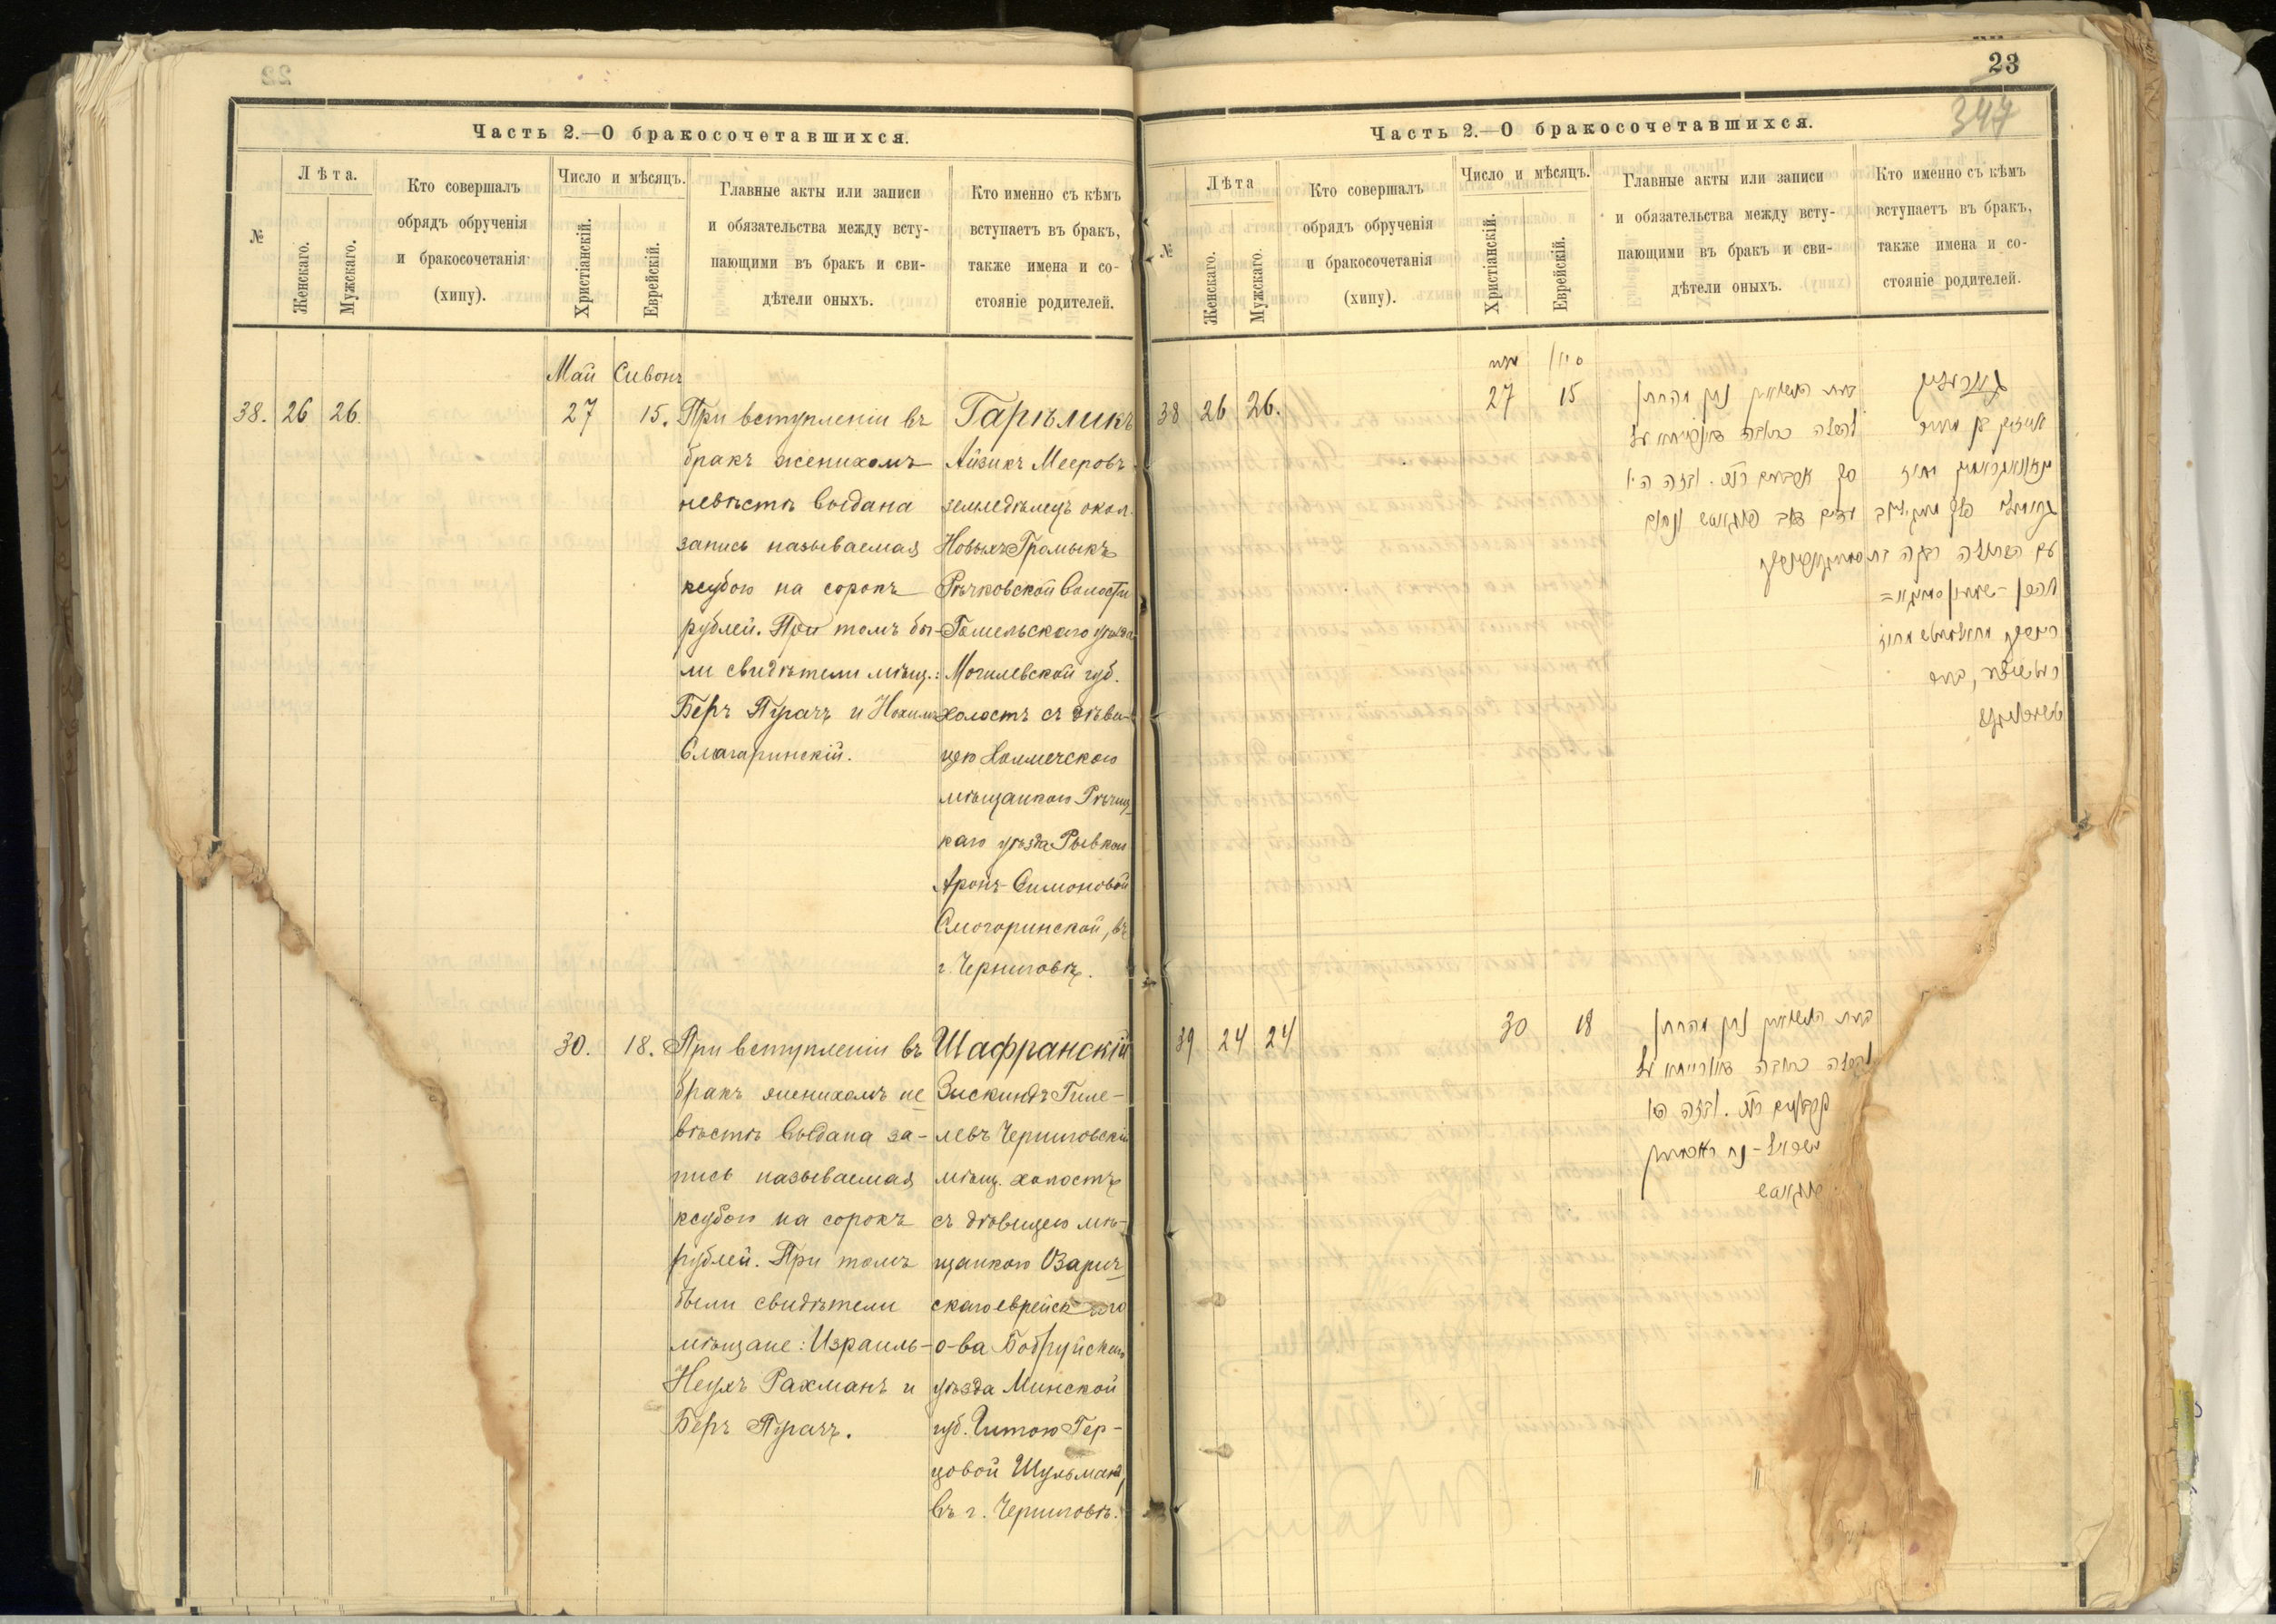 22
Часть 2.—О бракосочетавшихся.
№
Лѣта.
Женскаго.
Мужскаго.
Кто совершалъ
обрядъ обрученія
и бракосочетанія
(хипу).
Число и мѣсяцъ.
Христіанскій.
Еврейскій.
Главные акты или записи
и обязательства между всту-
пающими въ бракъ и сви-
дѣтели оныхъ.
Кто именно съ кѣмъ
вступаетъ въ бракъ,
также имена и со-
стояніе родителей.
38. 26 26.
Май Сивонъ
27 15.
При вступленіи въ
бракъ женихомъ
невѣстѣ выдана
запись называемая
ксубою на сорокъ
рублей. При томъ бы-
ли свидѣтели мѣщ.:
Беръ Пугачъ и Нохимъ
Смагаринскій.
Гарѣликъ
Айзикъ Мееровъ
земледѣлецъ окол.
Новыхъ Громыкъ
Рѣчковской волости
Гомельскаго уѣзда
Могилевской губ.
холостъ съ дѣви-
цею Холмечскою
мѣщанкою Рѣчиц-
каго уѣзда Рывкою
Аронъ-Симоновой
Смогоринской, въ
г. Черниговѣ.
30. 18.
При вступленіи въ
бракъ женихомъ не
вѣстѣ выдана за-
пись называемая
ксубою на сорокъ
рублей. При томъ
были свидѣтели
мѣщане: Израиль-
Неухъ Рахманъ и
Беръ Пугачъ.
Шафранскій
Зискиндъ Гиле-
левъ Черниговскій
мѣщ. холостъ
съ дѣвицею мѣ-
щанкою Озарич-
скаго еврейскаго
о-ва Бобруйскаго
уѣзда Минской
губ. Гитою Гер-
цовой Шульманъ,
въ г. Черниговѣ.
23
347
Часть 2.—О бракосочетавшихся.
№
Лѣта
Женскаго.
Мужскаго.
Кто совершалъ
обрядъ обрученія
и бракосочетанія
(хипу).
Число и мѣсяцъ.
Христіанскій.
Еврейскій.
Главные акты или записи
и обязательства между всту-
пающими въ бракъ и сви-
дѣтели оныхъ.
Кто именно съ кѣмъ
вступаетъ въ бракъ,
также имена и со-
стояніе родителей.
38 26 26.
מאי סיון
27 15
בעת הנשואין נתן החתן
להכלה כתובה
39 24 24
30 18
בעת הנשואין נתן החתן
להכלה כתובה